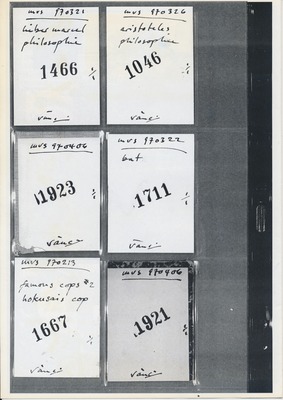 mvs 970321
lieber marcel
philosophie
1466
1/1
mvs 970326
aristoteles
philosophie
1046
1/1
mvs 970406
1923
1/1
mvs 970322
hat
1711
1/1
mvs 970213
famous cops #2
hokusais cop
1667
1/1
mvs 970406
1921
1/1